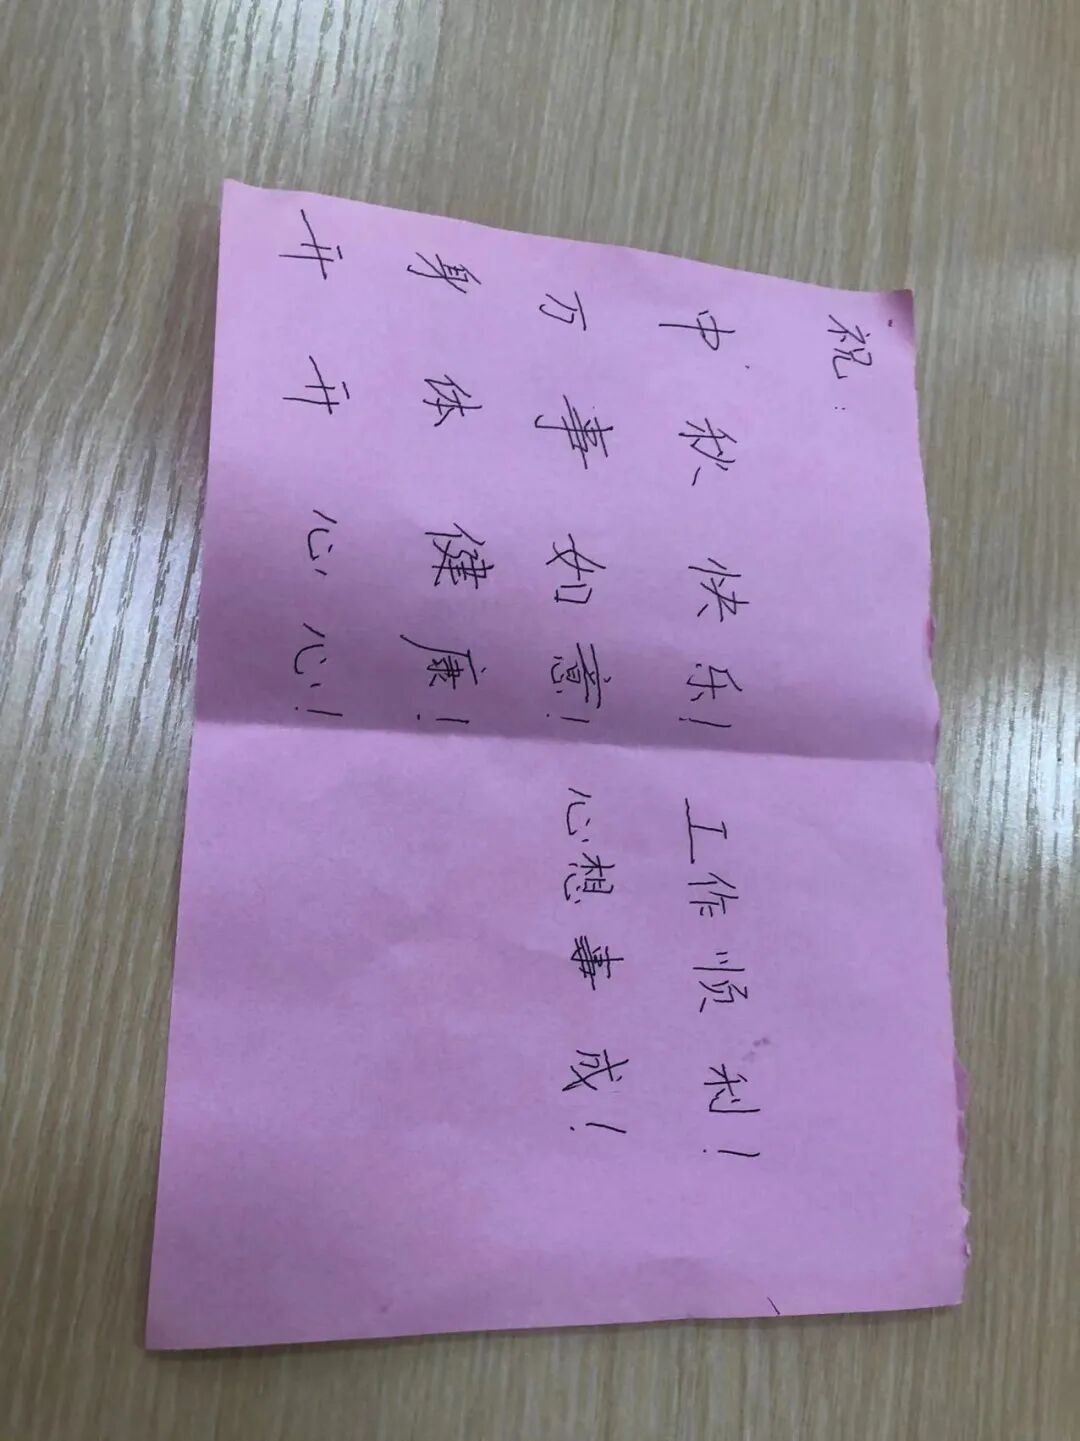 祝:
中秋快乐! 工作顺利!
万事如意! 心想事成!
身体健康!
开开心心!